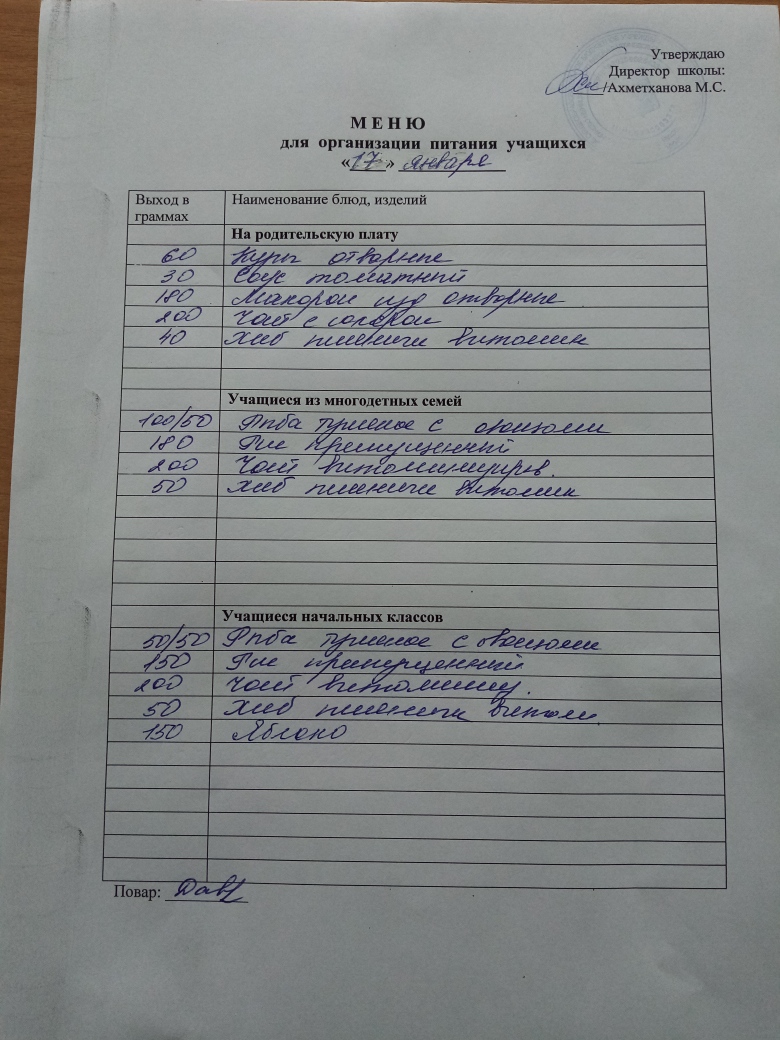 Утверждаю
Директор школы:
/Ахметханова М.С.
М Е Н Ю
для организации питания учащихся
«17» января
Выход в граммах Наименование блюд, изделий
На родительскую плату
60 Куры отварные
30 Соус томатный
180 Макарон изд отварные
200 Чай с сахаром
40 Хлеб пшеничн витамин
Учащиеся из многодетных семей
100/50 Рыба припас с овощами
180 Рис припущенный
200 Чай витаминиров.
50 Хлеб пшеничн витамин
Учащиеся начальных классов
50/50 Рыба с овощами
150 Рис припущенный
200 Чай витаминиз.
50 Хлеб пшеничн витам.
150 Яблоко
Повар: